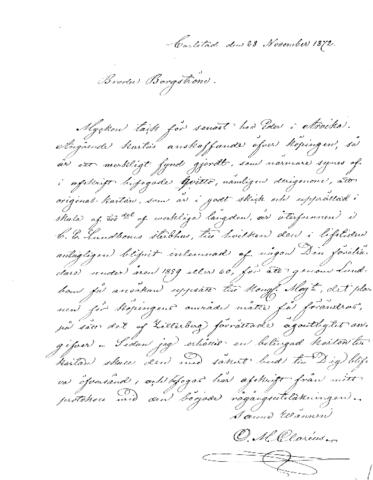 Carlstad den 28 November 1872.
Broder Borgström.
Mycken tack för senast hos Eder i Arvika.
Angående kartas anskaffande öfver köpingen, så
är ett verkligt fynd gjordt, som närmare synes af
i afskrift bifogade qvitto, nämligen derigenom, att
original kartan, som är i godt skick och upprättad i
skala af verkliga längden, är återfunnen i
C. E. Lundboms sterbhus, till hvilken den i lifstiden
antagligen blifvit inlemnad af någon Din företrä-
dare under åren 1859 eller 60, för att genom Lund-
bom få ansökan uppsatt till Kongl. Majt, det pla-
nen för köpingens område måtte få förändras,
på sätt det af förrättade ägoutbyte an-
gifver. Sedan jag erhållit en
kartan skall den med säkert bud till Dig blif-
va öfversänd, och bifogas här afskrift från mitt
protokoll vid den började rågångsutstakningen.
Sanne Wännen
O. M. Claréus.